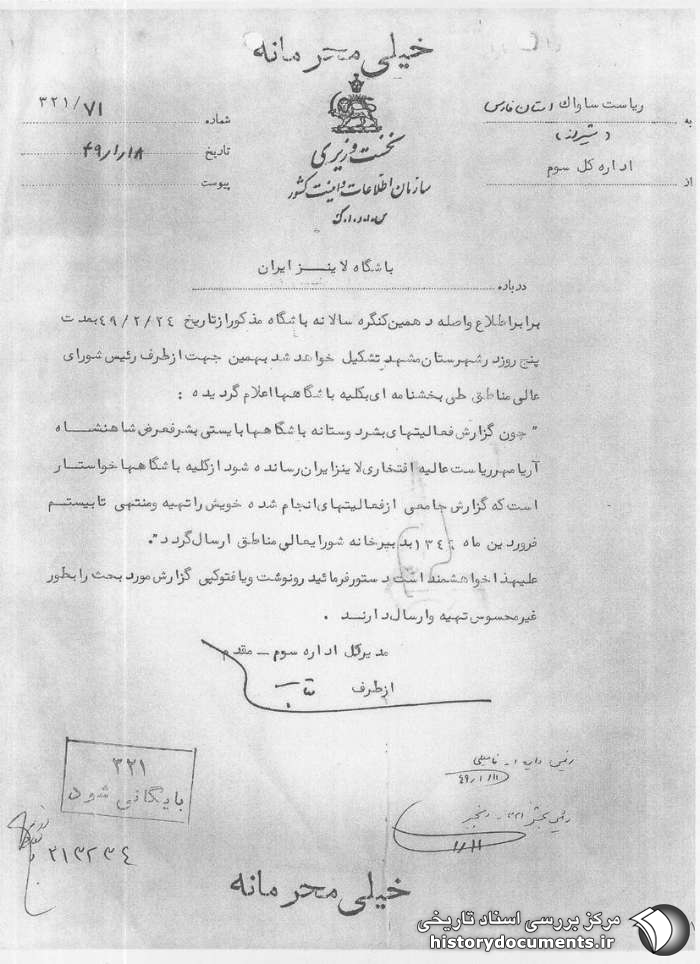 خیلی محرمانه
به ریاست ساواك استان فارس
(شیراز)
از اداره کل سوم
نخست وزیری
سازمان اطلاعات و امنیت کشور
س.ا.و.ا.ک
شماره ۳۲۱/۷۱
تاریخ
پیوست
درباره باشگاه لاینز ایران
برابر اطلاع واصله دهمین کنگره سالانه باشگاه مذکور از تاریخ ۴۹/۲/۲۴ بمدت
پنج روز در شهرستان مشهد تشکیل خواهد شد بهمین جهت از طرف رئیس شورای
عالی مناطق طی بخشنامه ای بکلیه باشگاهها اعلام گردیده :
" چون گزارش فعالیتهای بشر دوستانه باشگاهها بایستی بشرفعرض شاهنشاه
آریامهر ریاست عالیه افتخاری لاینز ایران رسانده شود از کلیه باشگاهها خواستار
است که گزارش جامعی از فعالیتهای انجام شده خویش را تهیه و منتهی تا بیستم
فروردین ماه بدبیرخانه شورایعالی مناطق ارسال گردد".
علیهذا خواهشمند است دستور فرمائید رونوشت و یا فتوکپی گزارش مورد بحث را بطور
غیر محسوس تهیه و ارسال دارند .
مدیر کل اداره سوم - مقدم
از طرف
رئیس دایره
۴۹/۱/۱۱
رئیس بخش ۳۲۱ - رنجبر
۱/۱۱
۳۲۱
بایگانی شود
۲۱۳۲۳۴
خیلی محرمانه
مرکز بررسی اسناد تاریخی
historydocuments.ir